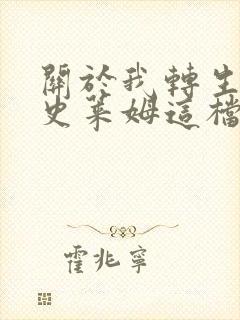 關於我轉生
史萊姆這檔
霍兆寧